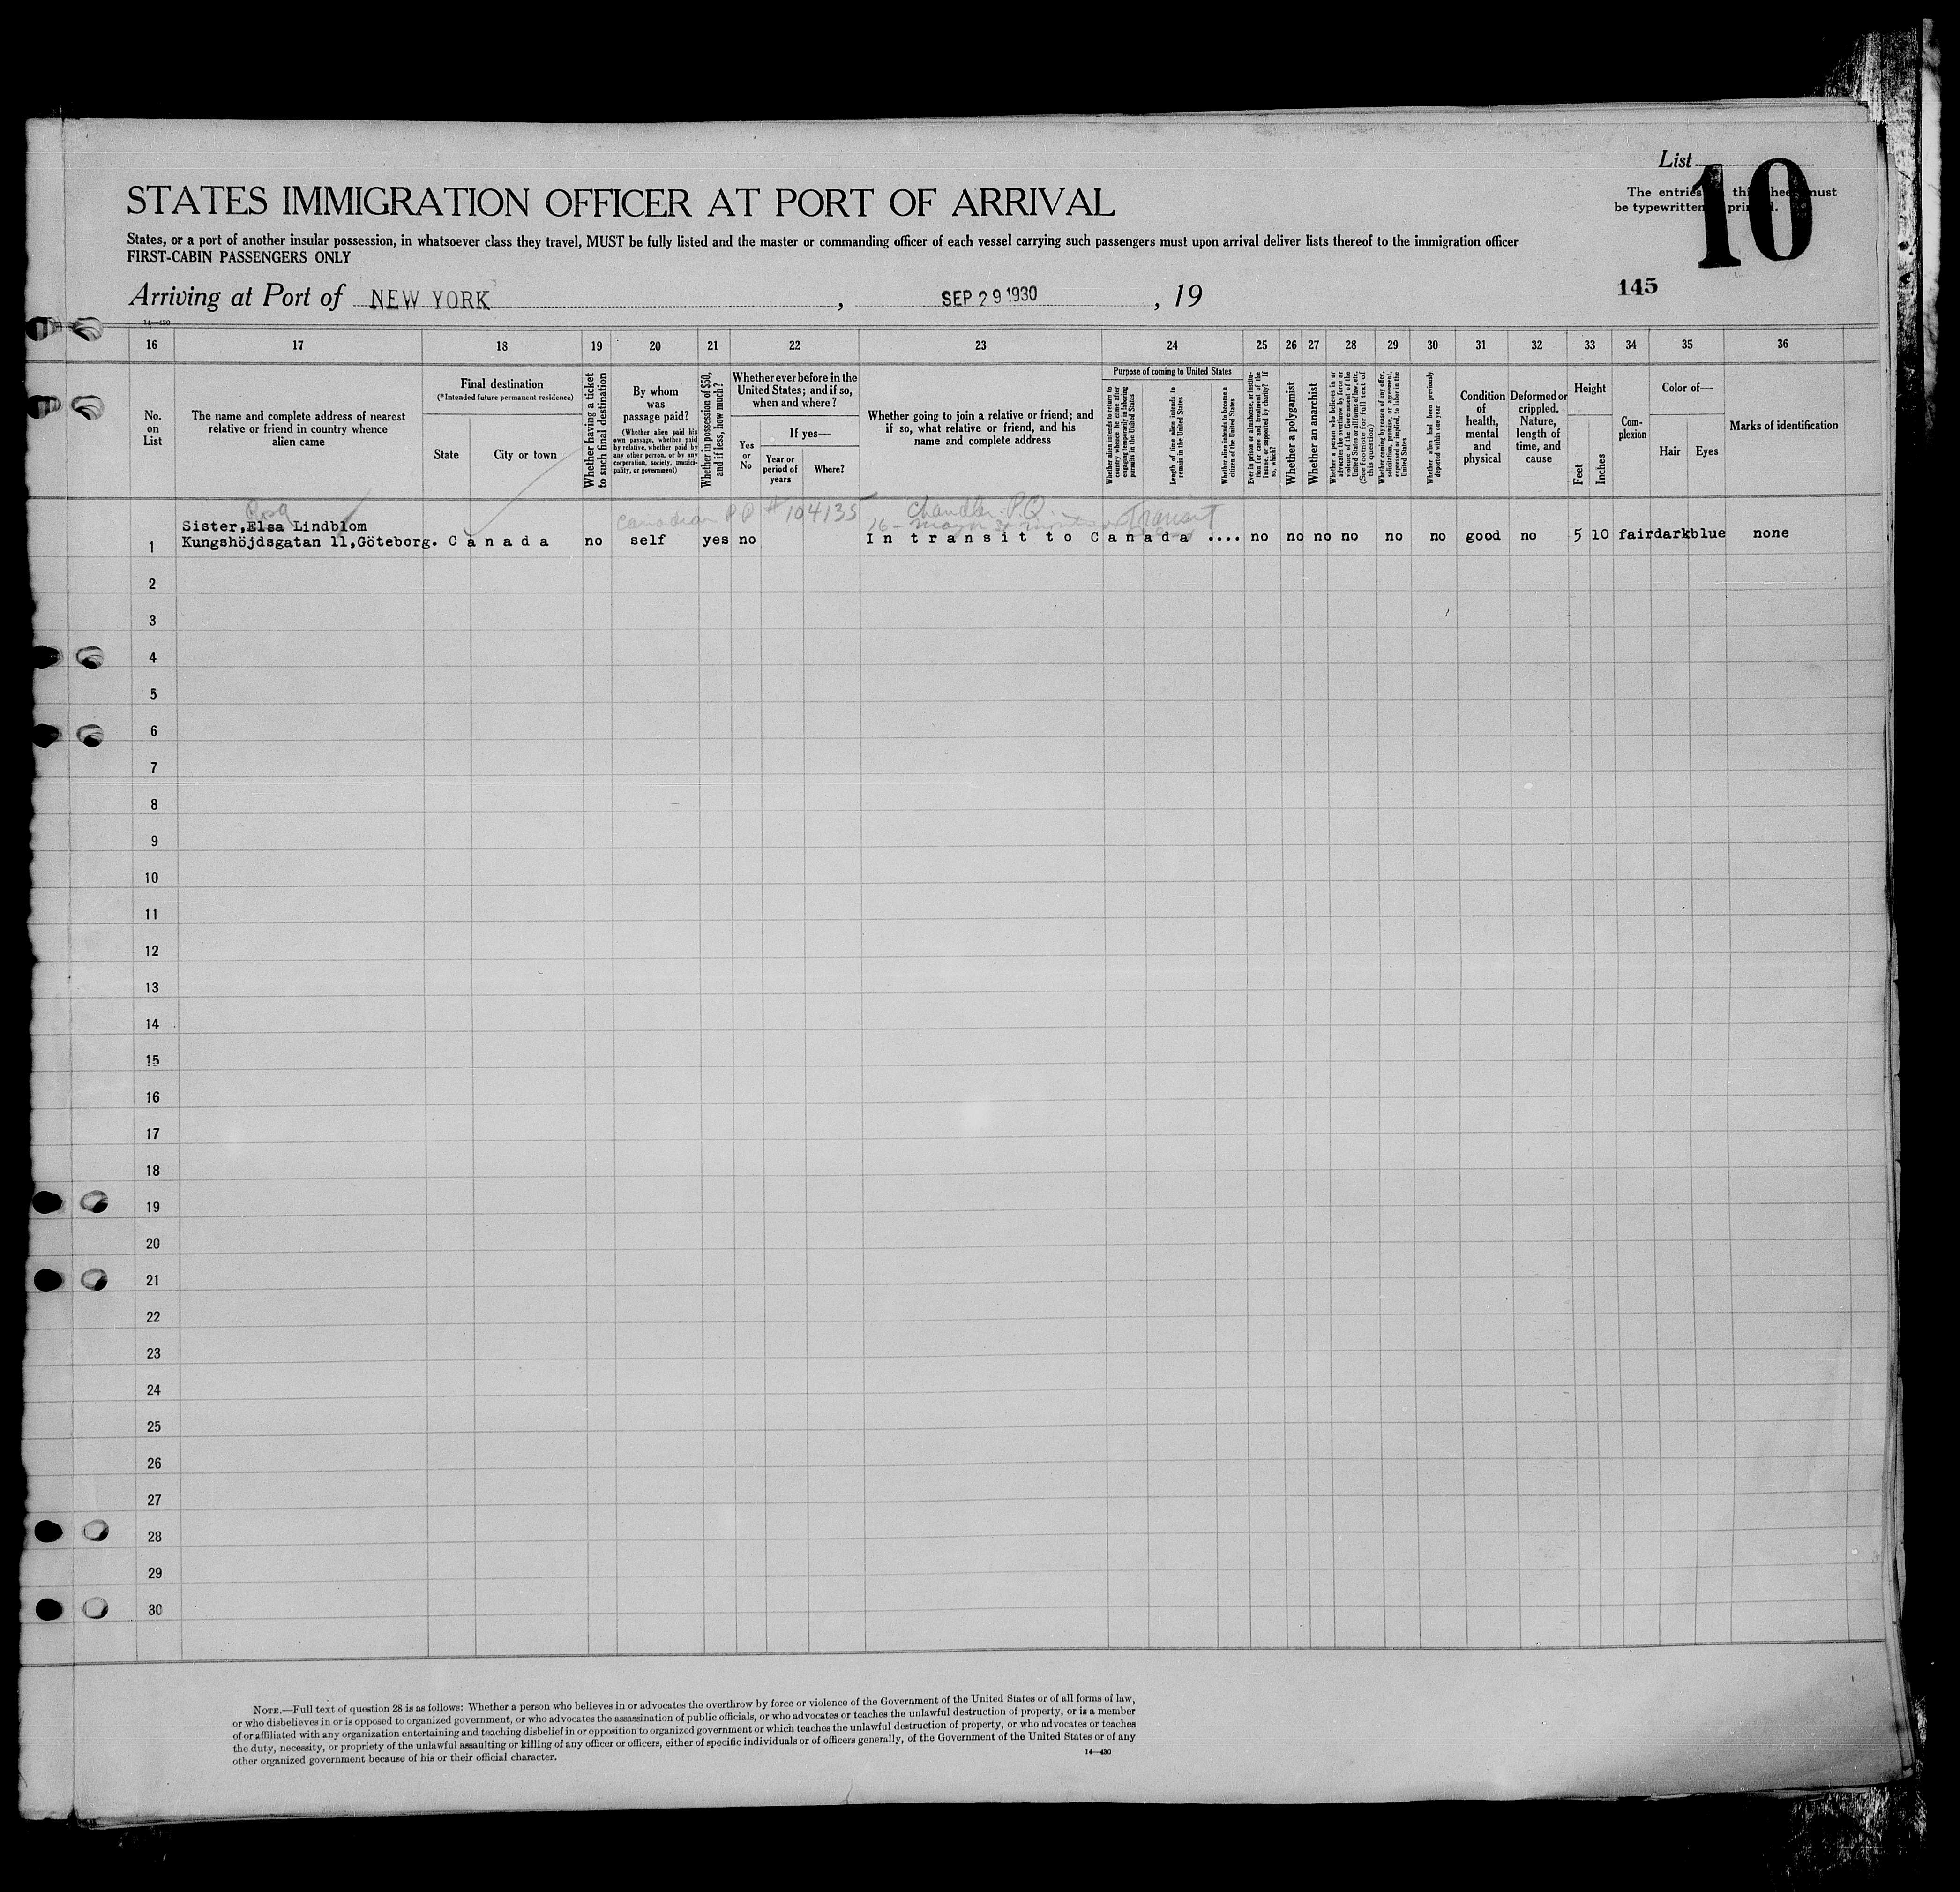 List
10
The entries on this sheet must
be typewritten or printed.
STATES IMMIGRATION OFFICER AT PORT OF ARRIVAL
States, or a port of another insular possession, in whatsoever class they travel, MUST be fully listed and the master or commanding officer of each vessel carrying such passengers must upon arrival deliver lists thereof to the immigration officer
FIRST-CABIN PASSENGERS ONLY
145
Arriving at Port of NEW YORK , SEP 29 1930 , 19
14—430
16 17 18 19 20 21 22 23 24 25 26 27 28 29 30 31 32 33 34 35 36
No. on List
The name and complete address of nearest relative or friend in country whence alien came
Final destination
(*Intended future permanent residence)
State
City or town
Whether having a ticket to such final destination
By whom was passage paid?
(Whether alien paid his own passage, whether paid by relative, whether paid by any other person, or by any corporation, society, municipality, or government)
Whether in possession of $50, and if less, how much?
Whether ever before in the United States; and if so, when and where?
Yes or No
If yes—
Year or period of years
Where?
Whether going to join a relative or friend; and if so, what relative or friend, and his name and complete address
Purpose of coming to United States
Whether alien intends to return to country whence he came after engaging temporarily in laboring pursuits in the United States
Length of time alien intends to remain in the United States
Whether alien intends to become a citizen of the United States
Ever in prison or almshouse, or institution for care and treatment of the insane, or supported by charity? If so, which?
Whether a polygamist
Whether an anarchist
Whether a person who believes in or advocates the overthrow by force or violence of the Government of the United States or all forms of law, etc. (See footnote for full text of this question)
Whether coming by reason of any offer, solicitation, promise, or agreement, expressed or implied, to labor in the United States
Whether alien had been previously deported within one year
Condition of health, mental and physical
Deformed or crippled. Nature, length of time, and cause
Height
Feet
Inches
Complexion
Color of—
Hair
Eyes
Marks of identification
Canadian P P # 104135
Chandler. P.Q.
Transit
Sister,Elsa Lindblom
1 Kungshöjdsgatan 11,Göteborg. C a n a d a no self yes no I n t r a n s i t t o C a n a d a .... no no no no no no good no 5 10 fair dark blue none
2
3
4
5
6
7
8
9
10
11
12
13
14
15
16
17
18
19
20
21
22
23
24
25
26
27
28
29
30
NOTE.—Full text of question 28 is as follows: Whether a person who believes in or advocates the overthrow by force or violence of the Government of the United States or of all forms of law,
or who disbelieves in or is opposed to organized government, or who advocates the assassination of public officials, or who advocates or teaches the unlawful destruction of property, or is a member
of or affiliated with any organization entertaining and teaching disbelief in or opposition to organized government or which teaches the unlawful destruction of property, or who advocates or teaches
the duty, necessity, or propriety of the unlawful assaulting or killing of any officer or officers, either of specific individuals or of officers generally, of the Government of the United States or of any
other organized government because of his or their official character.
14—430